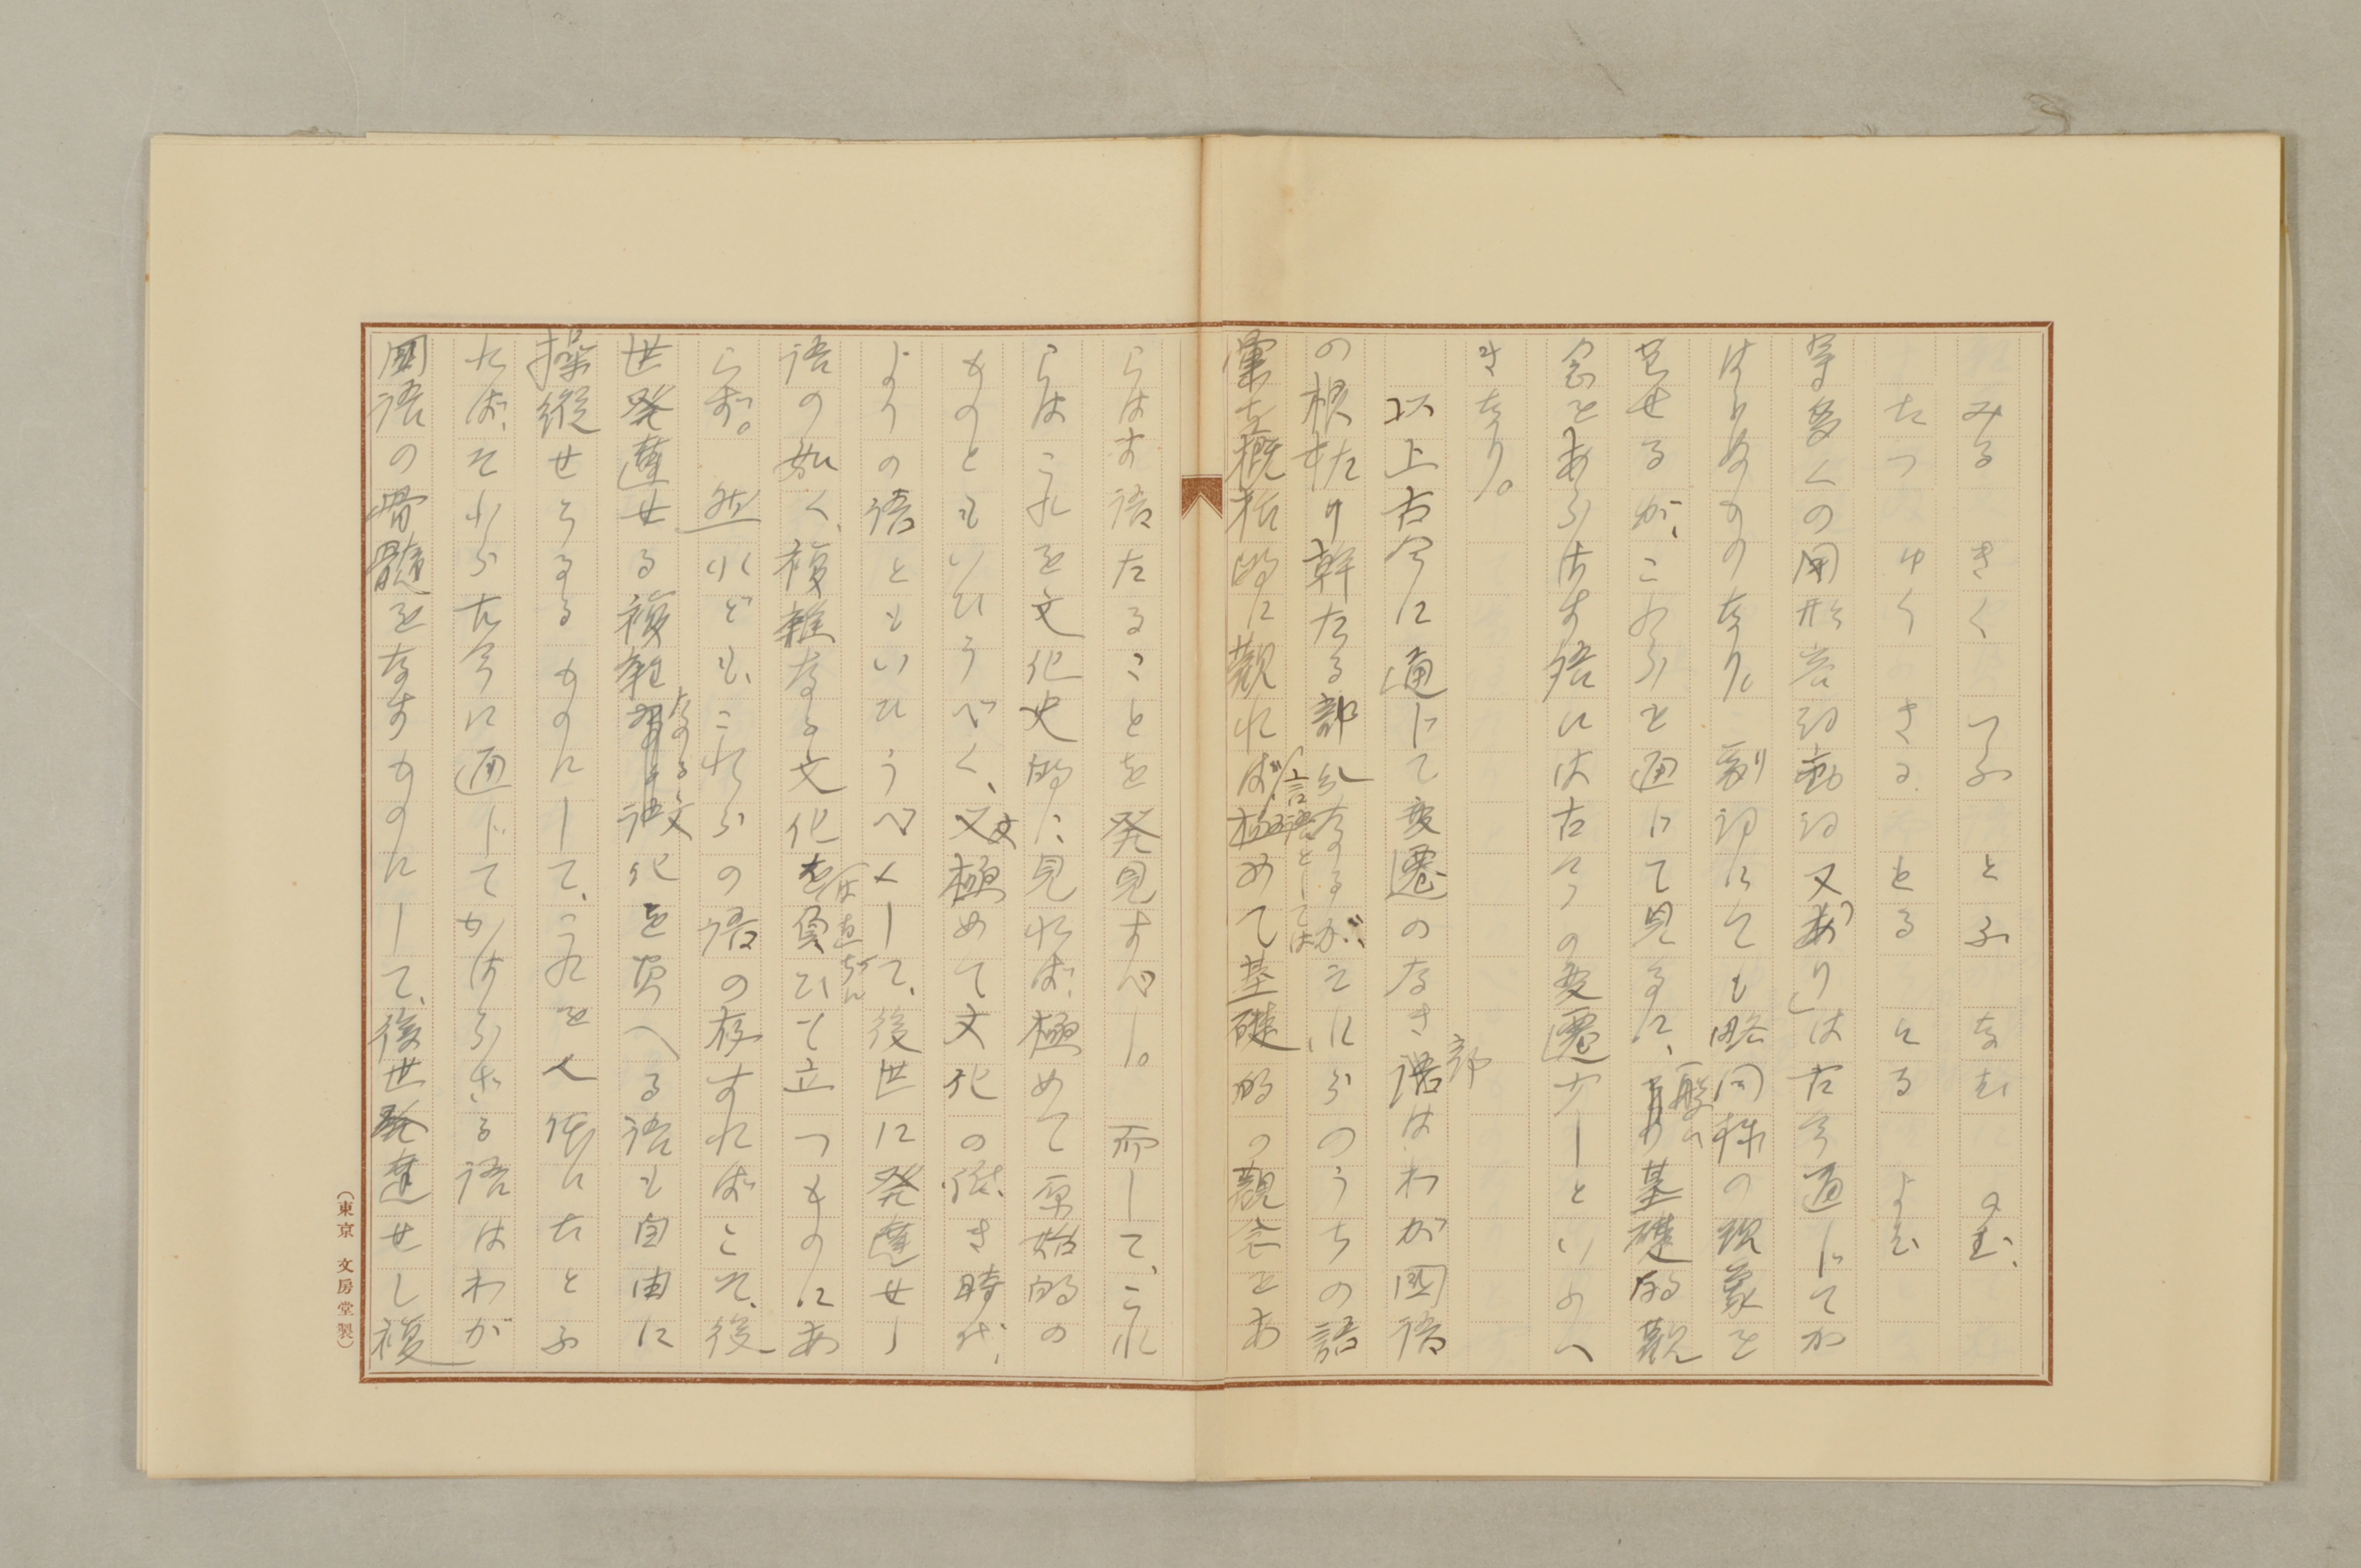 みる きく いふ とふ なむ のむ
たつ ゆく きる とる そる よむ
等多くの用形容詞動詞又「あり」は古今通じてか
はらぬものなり。副詞にても略同種の現象を
呈せるが、これらを通じて見るに、一般に基礎的観
念をあらはす語には古今の変遷少しといふべ
きなり。
以上古今に通じて変遷のなき部はわが国語
の根幹たる部分なるが、それらのうちの語
彙を概括的に観れば、言語としては極めて基礎的の観念をあ
らはす語たることを発見すべし。而して、これ
らはこれを文化史的に見れば、極めて原始的の
ものともいひうべく、文極めて文化の低き時代、
よりの語ともいひうべくして、後世に発達せし
語の如く、複雑なる文化を負ひて立つものにあ
らず。然れども、これらの語の存すればこそ、後
世発達せる複雑なる文化を負へる語も自由に
操縦せらるるものにして、これを人体にたとふ
れば、それら古今に通じてかはらざる語はわが
国語の骨髄をなすものにして、後世発達せし複
(東京 文房堂製)